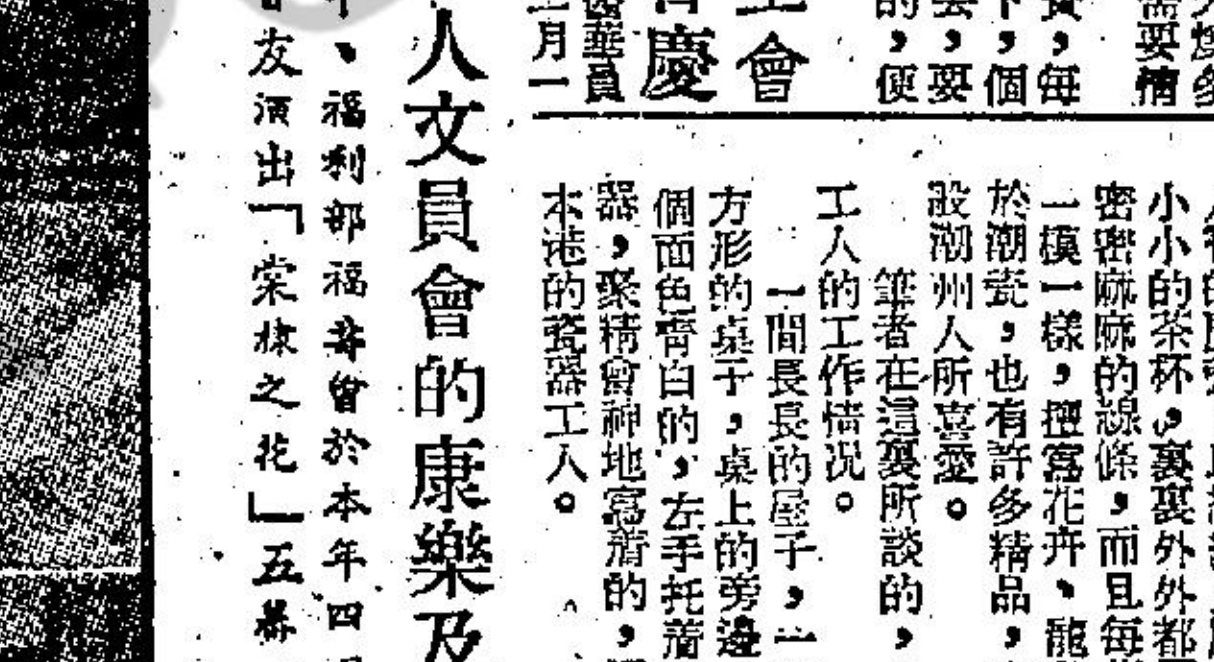 需要精
費，每
下，個
要
的，便
會
慶
華員
月一
小小的茶杯，裏裏外外都
密密麻麻的線條，而且每
一模一樣，擅寫花卉、龍
於潮瓷，也有許多精品，
般潮州人所喜愛。
筆者在這裏所談的，
工人的工作情况。
一間長長的屋子，一
方形的桌子，桌上的旁邊
個面色青白的，左手托着
器，聚精會神地寫着的，
本港的瓷器工人。
人文員會的康樂及
、福利部福音曾於本年四
友演出「棠棣之花」五幕